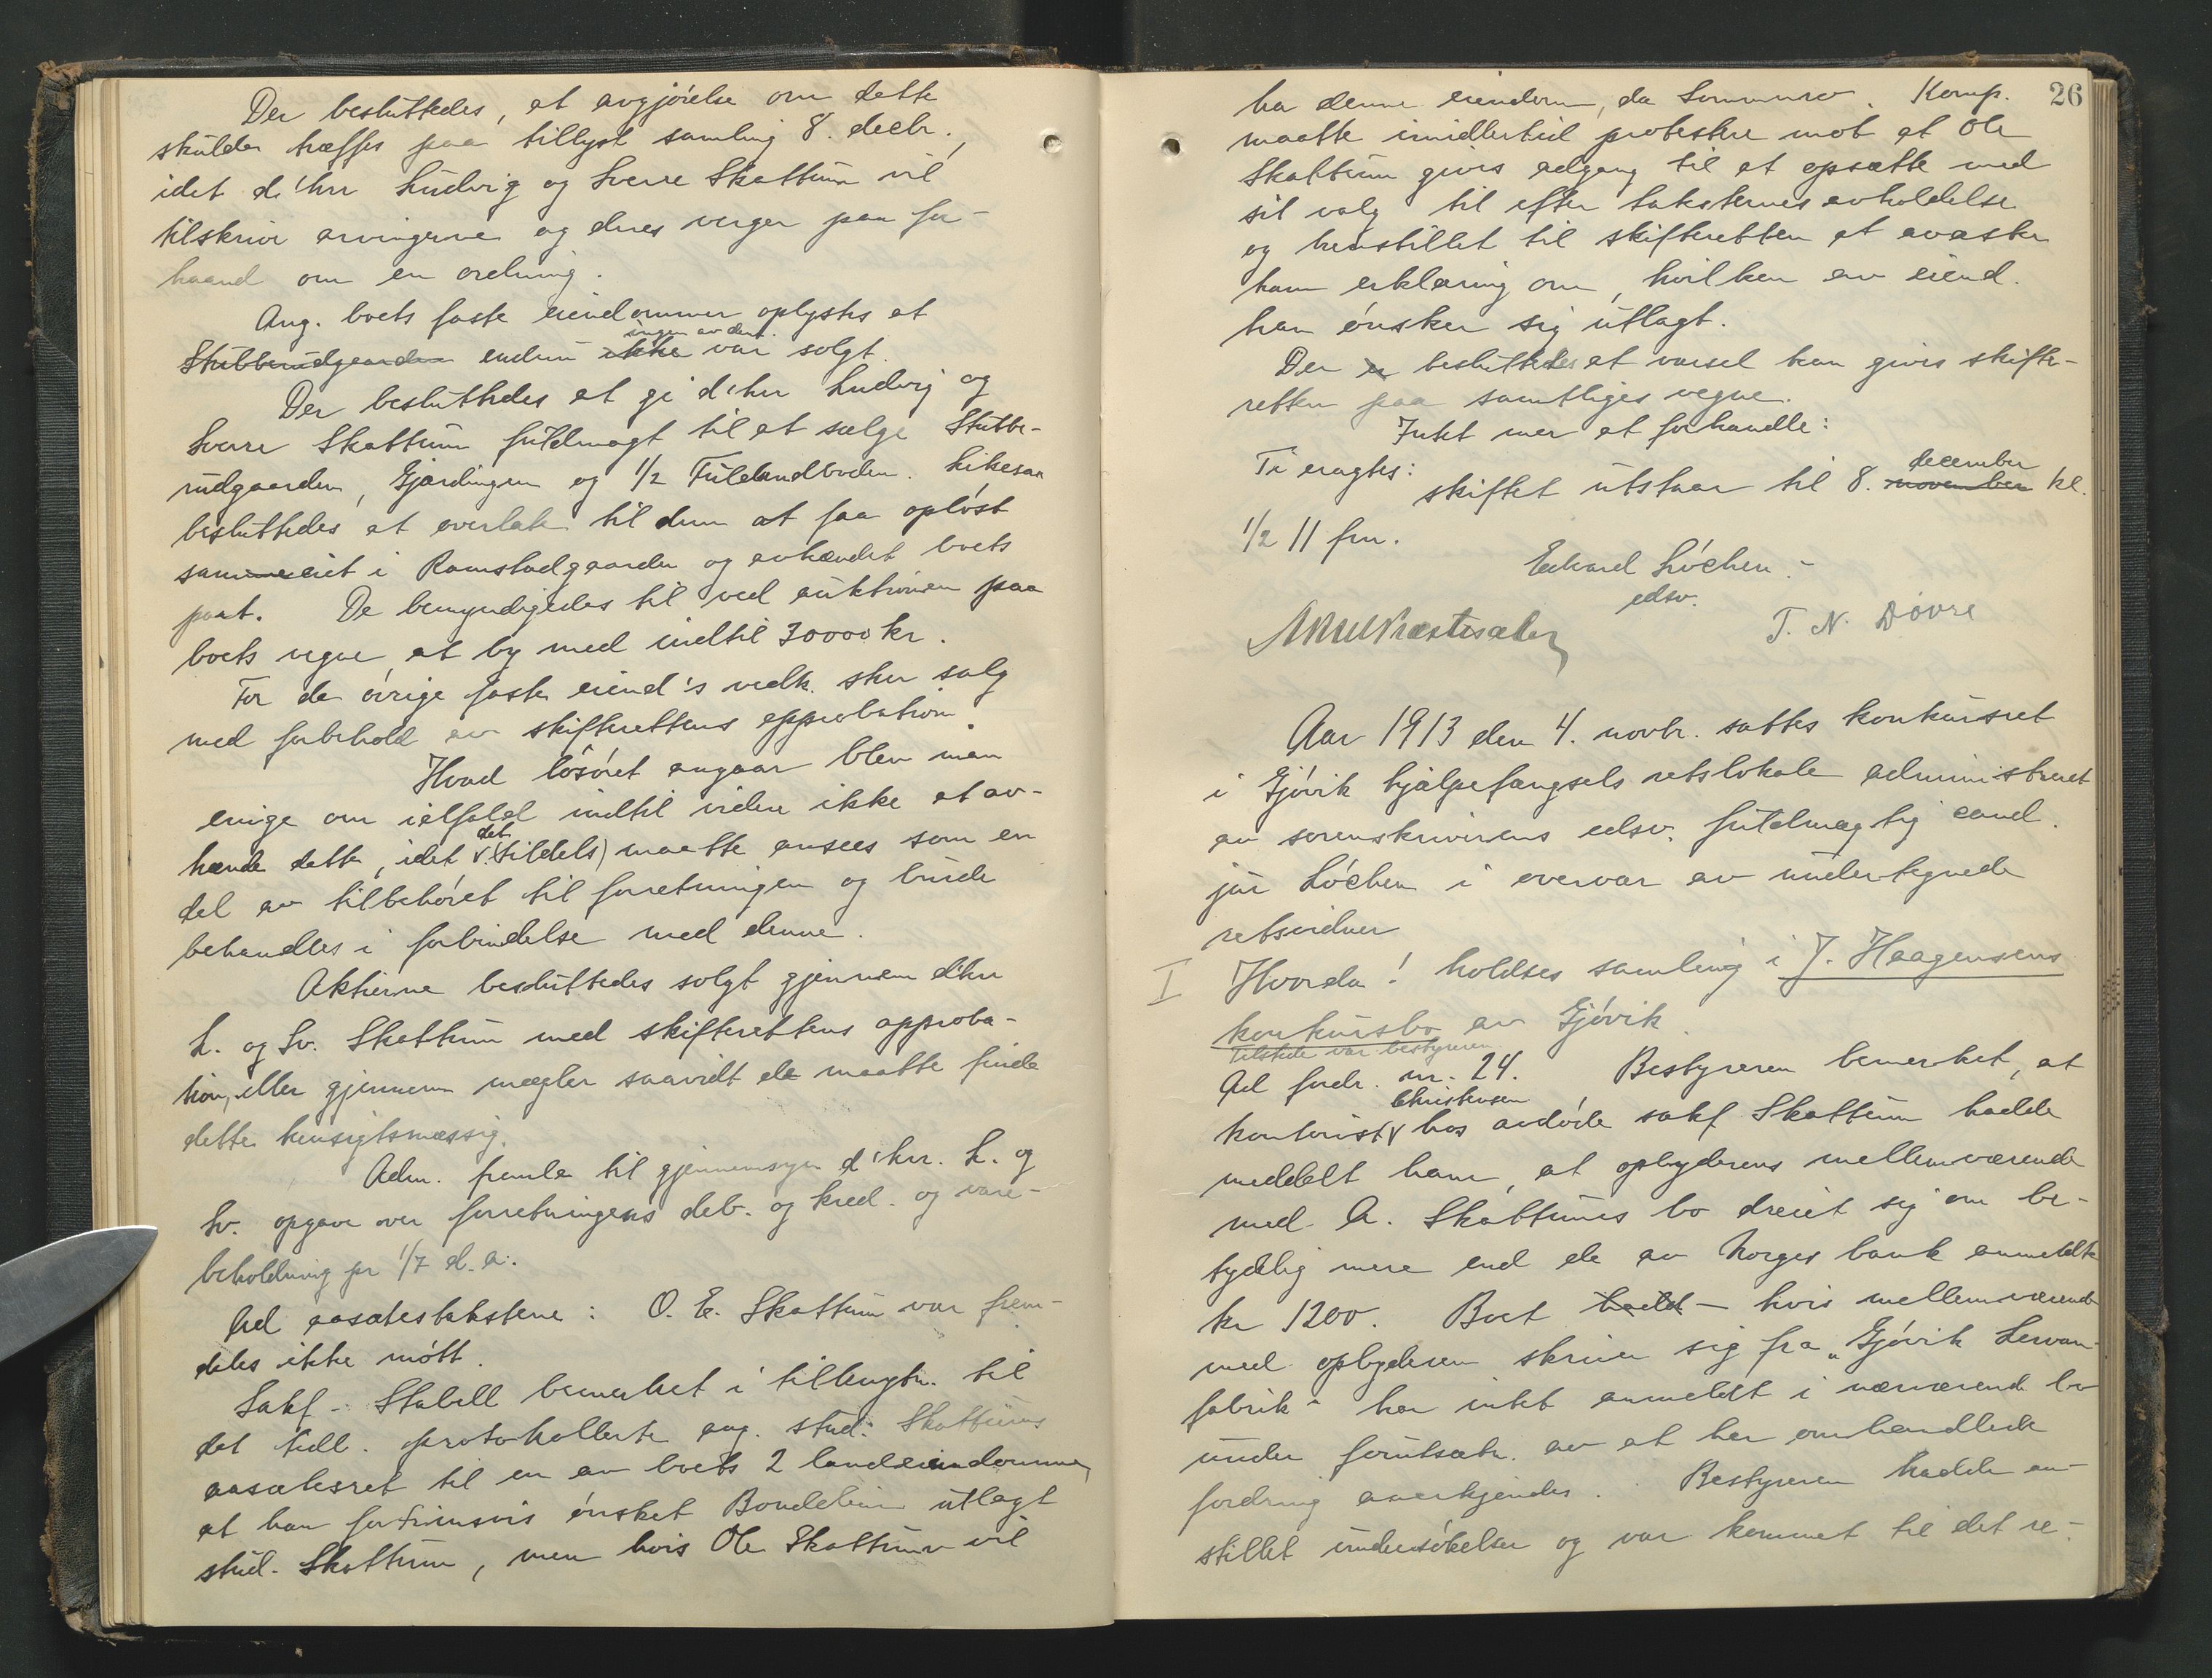 Der besluttedes, at avgjörelse om dette
skulde træffes paa tillyst samling 8. decbr.,
idet d'hrr Ludvig og Sverre Skattum vil
tilskrive arvingerne og deres verger paa for-
haand om en ordning.
Ang. boets faste eiendommer oplystes at
ingen av dem
Stubberudgaarden endnu ikke var solgt.
Der besluttedes at gi d'hrr Ludvig og
Sverre Skattum fuldmagt til at sælge Stubbe-
rudgaarden, Gjærdingen og 1/2 Fulelandboden. Likesaa
besluttedes at overlate til dem at faa oplöst
sammeeiet i Ramstadgaarden og avhændet boets
part. De bemyndigedes til ved auktionen paa
boets vegne at by med indtil 30000 kr.
For de övrige faste eiend's vedk. sker salg
med forbehold av skifterettens approbation.
Hvad lösöret angaar blev man
enige om ialfald indtil videre ikke at av-
det
hænde dette, idet (tildels) maatte ansees som en
del av tilbehöret til forretningen og burde
behandles i forbindelse med denne.
Aktierne besluttedes solgt gjennem d'hrr
L. og Sv. Skattum med skifterettens approba-
tion, eller gjennem mægler saavidt de maatte finde
dette hensigtsmæssig.
Adm. fremla til gjennemsyn d'hrr. L. og
Sv. opgave over forretningens deb. og kred. og vare-
beholdning pr 1/7 d.a.
Ad aasætestakstene: O. E. Skattum var frem-
deles ikke mött.
Sakf. Stabell bemerket i tillengde til
det tidl. protokollerte ang. stud. Skattums
aasætesret til en av boets 2 landeiendommer,
at han fortrinsvis önsket Bondelien utlagt
stud. Skattum, men hvis Ole Skattum vil
26
ha denne eiendom, da Sommero. Komp.
maatte imidlertid protestere mot at Ole
Skattum gives adgang til at opsætte med
sit valg til efter taksternes avholdelse
og henstillet til skifteretten at avæske
ham erklæring om, hvilken av eiend.
han önsker sig utlagt.
Der er besluttedes at varsel kan gives skifte-
retten paa samtliges vegne.
Intet mer at forhandle:
Ti eragtes:
december
skiftet utstaar til 8. november kl.
1/2 11 fm.
Edvard Löchen.
edsv.
T. N. Dövre
Aar 1913 den 4. novbr. sattes konkursret
i Gjövik hjælpefængsels retslokale administreret
av sorenskriverens edsv. fuldmægtig cand.
jur Löchen i overvær av undertegnede
retsvidner
I Hvorda! holdtes samling i J. Haagensens
konkursbo av Gjövik.
Tilstede var bestyreren.
Ad fordr. nr. 24. Bestyreren bemerket, at
Christensen
kontorist hos avdöde sakf Skattum hadde
meddelt ham, at opbyderens mellemværende
med A. Skattums bo dreiet sig om be-
tydelig mere end de av Norges bank anmeldte
kr 1200. Boet - hvis mellemværende
med opbyderen skriver sig fra „Gjövik Lervare-
fabrik" har intet anmeldt i nærværende bo
under forutsætn. av at her omhandlede
fordring anerkjendes. Bestyreren hadde an-
stillet undersökelser og var kommet til det re-